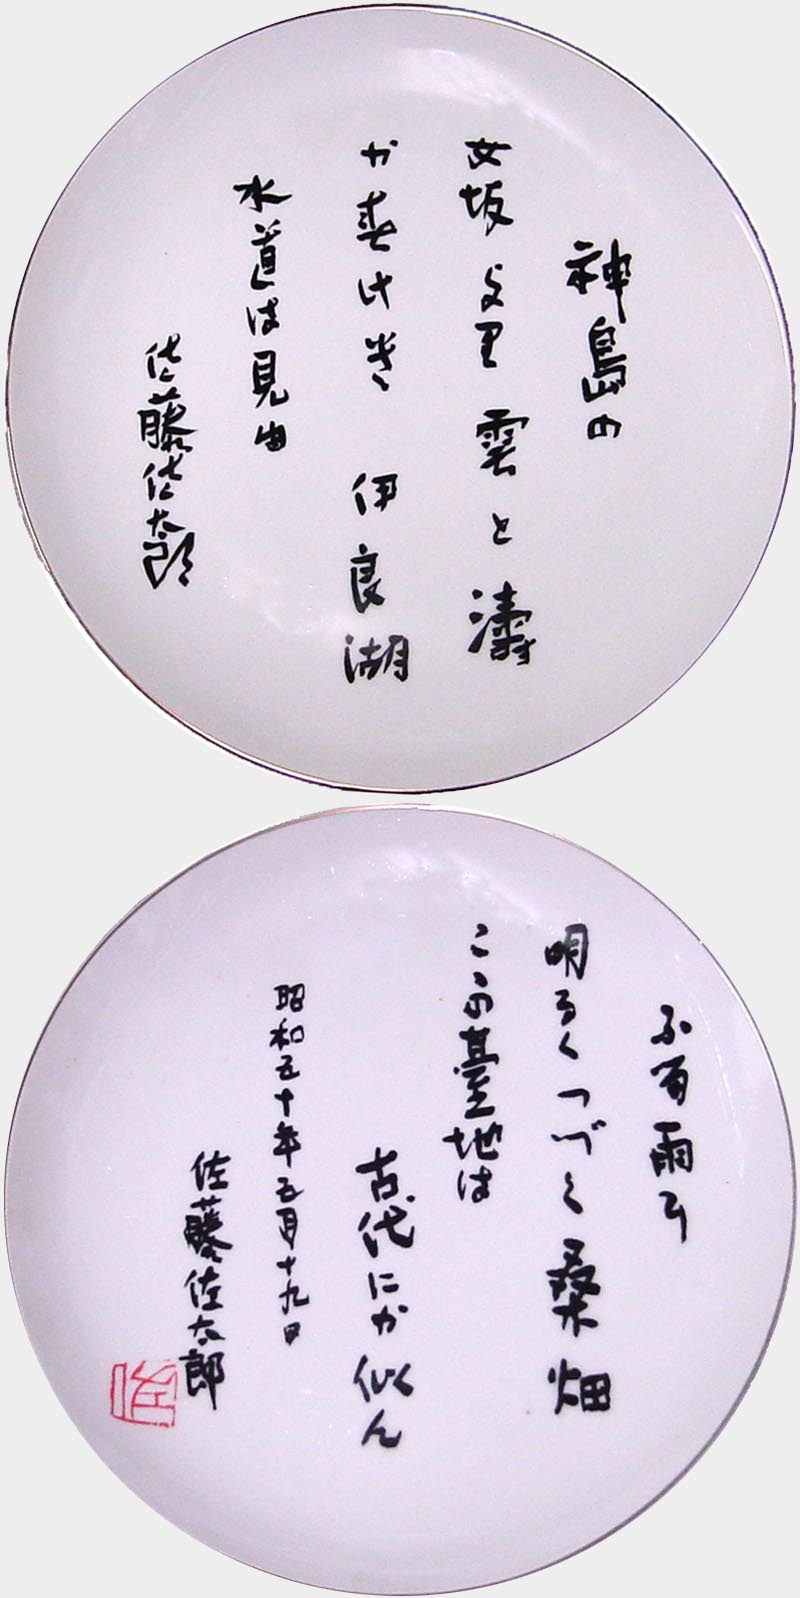 神島の
女坂より雲と濤
かすけき 伊良湖
水道は見ゆ
佐藤佐太郎
ふる雨に
明るくつづく桑畑
ここの臺地は
古代にか似ん
昭和五十年五月十九日
佐藤佐太郎